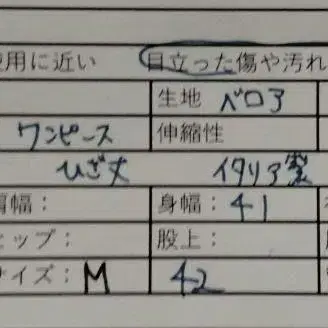 使用に近い 目立った傷や汚れ
生地 ベロア
ワンピース 伸縮性
ひざ丈 イタリア製
肩幅： 身幅：41
ヒップ： 股上：
サイズ：M 42